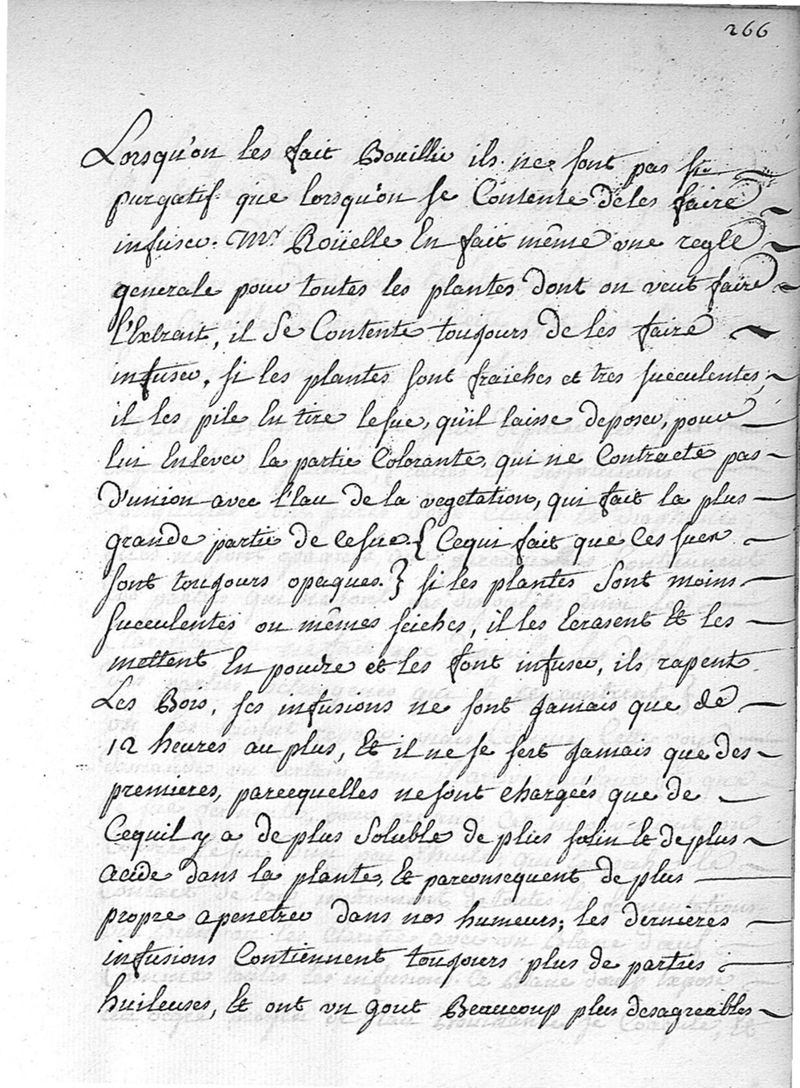 266
Lorsqu'on les fait Bouillir ils ne sont pas si
purgatif que lorsqu'on se Contente deles faire
infuser. Mr Roüelle En fait même une regle
generale pour toutes les plantes dont on veut faire
l'Extrait, il Se Contente toujours de les faire
infuser, si les plantes sont fraiches et tres succulentes,
il les pile En tire lesuc, qu'il laisse deposer, pour
lui Enlever la partie Colorante, qui ne Contracte pas
d'union avec l'Eau de la vegetation, qui fait la plus
grande partie de cesuc { Cequi fait que Ces sucs
sont toujours opaques. } si les plantes Sont moins
succulentes ou mêmes séiches, il les Ecrasent Et les
mettent En poudre et les font infuser, ils rapent
Les Bois, ses infusions ne sont Jamais que de
12 heures au plus, Et il ne se sert Jamais que des
premieres, parcequelles nesont chargées que de
Cequil y a de plus Soluble de plus salin Et deplus
acide dans la plante, Et parconsequent de plus
propre apenetrer dans nos humeurs; les dernieres
infusions Contiennent toujours plus de parties
huileuses, Et ont un gout Beaucoup plus desagreables